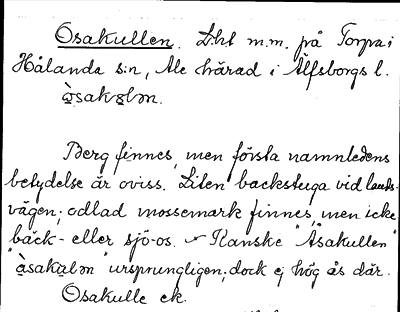 Osakullen. Lht m.m. på Torpa i
Hålanda s:n, Ale härad i Älfsborgs l.
òsakuḷən.
Berg finnes, men första namnledens
betydelse är oviss. Liten backstuga vid lands-
vägen; odlad mossemark finnes, men icke
bäck- eller sjö-os. Kanske "Åsakullen"
"åsakuḷən" ursprungligen; dock ej hög ås där.
Osakulle ek.